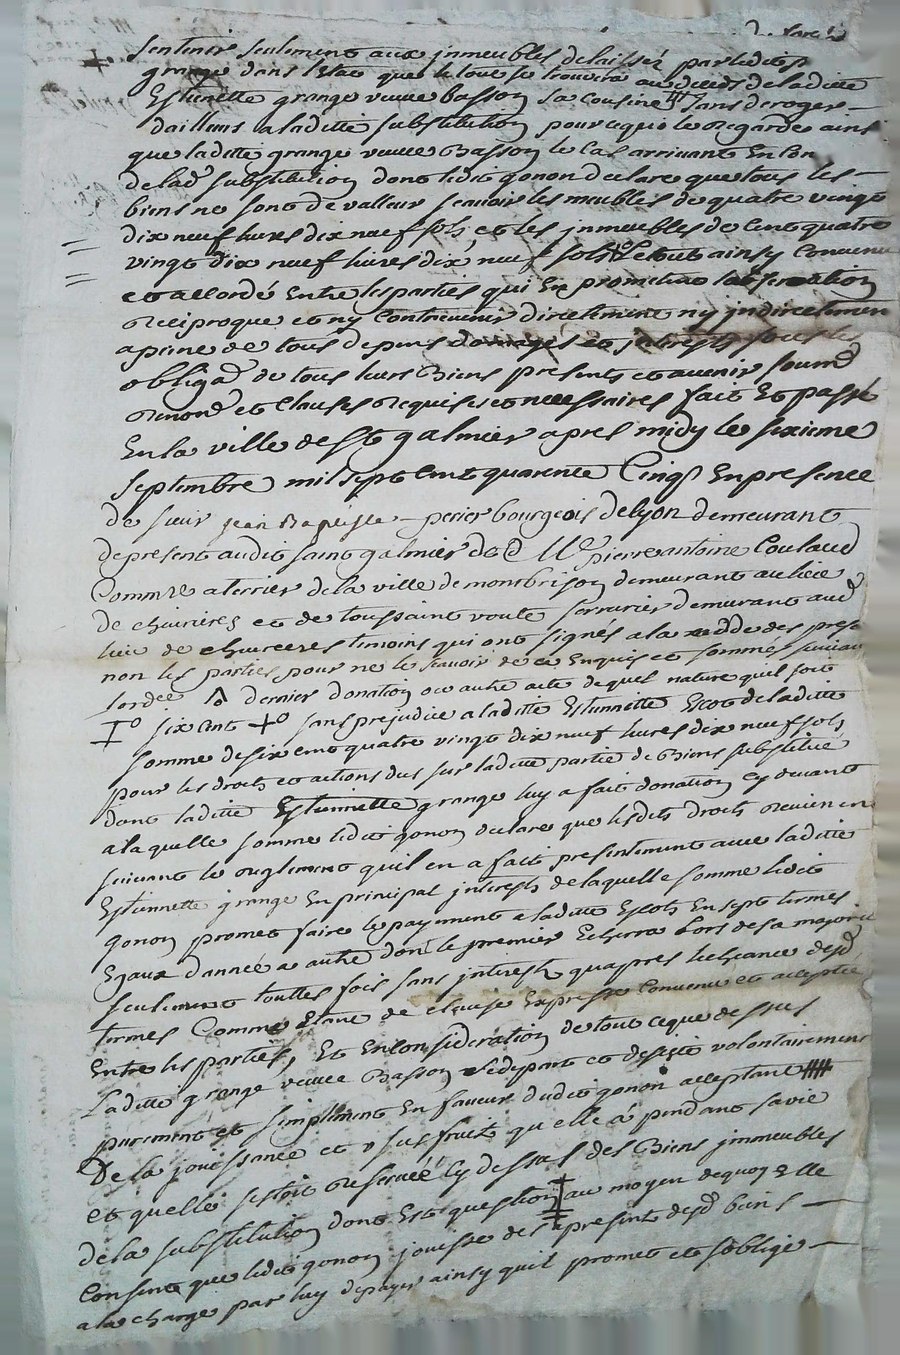 sentenir seulement aux jnmeubles delaissés par ledit
grange dans letat que le tout se trouvera au deceds de laditte
Estiennette grange veuve Basson sa cousine sans deroger
dailleurs a laditte substitution pour ce qui le regarde ainsi
que laditte grange veuve Basson le cas arrivant En lon
delad substitution dont ledit gonon declare que tous les
biens ne sont de valleur scavoir les meubles de quatre vingt
dix neuf livres dix neuf sols et les jnmeubles de Cent quatre
vingt dix neuf livres dix neuf sols Le tout ainsy Convenu
et accordé Entre les parties qui En promettent
Reciproque et ny Contrevenir directement ny jndirectement
a peine de tous depens domages et jnterests sous les
obligad de tous leurs Biens presents et avenir soumd
Renond et Clauses Requises et necessaires fait Et passé
En la ville de St galmier apres midy le sixieme
septembre mil sept Cent quarente Cinq En presence
de sieur jean Baptiste perier bourgeois de lyon demeurant
de present audit saint galmier Me pierre antoine Coulaud
Commre a terrier de la ville de montbrison demeurant au lieu
de chevrieres et de toussaint voute serrurier demurant aud
lieu de chevreres temoins qui ont signés a la des pres
non les parties pour ne le scavoir de ce Enquis et sommés suivan
lordce dernier donation ou autre acte de quel nature quil soit
six Cent sans prejudice a laditte Estiennette Escot de laditte
somme de six Cent quatre vingt dix neuf livres dix neuf sols
pour les droits et actions dus sur laditte partie de Biens substitué
dont laditte Estiennette grange luy a fait donation Cy devant
a laquelle somme ledit gonon declare que lesdits droits Revienen
suivant le reglement quil en a fait presentement avec laditte
Estiennette grange En principal jnterests de laquelle somme ledit
gonon promet faire le payement a laditte Escots En sept termes
Egaux dannée a autre dont le premier Echerra Lors de sa majorit
seulement touttes fois sans jnterests quapres lecheance desd
termes Comme Etant de clause Expresse Convenu et accepté
Entre les parties, Et En Consideration de tout ce que dessus
Laditte grange veuve Basson sedepart et desiste volontairement
purement et simplement En faveur dudit gonon acceptant
De la jouissance et usufruit qu elle a pendant sa vie
et quelle sestoit Reservée Cy dessus des Biens jmmeubles
de la substitution dont Est question au moyen de quoy Elle
Consent que ledit gonon jouisse des apresent desd biens
a la charge par luy depayer ainsy quil promet et soblige